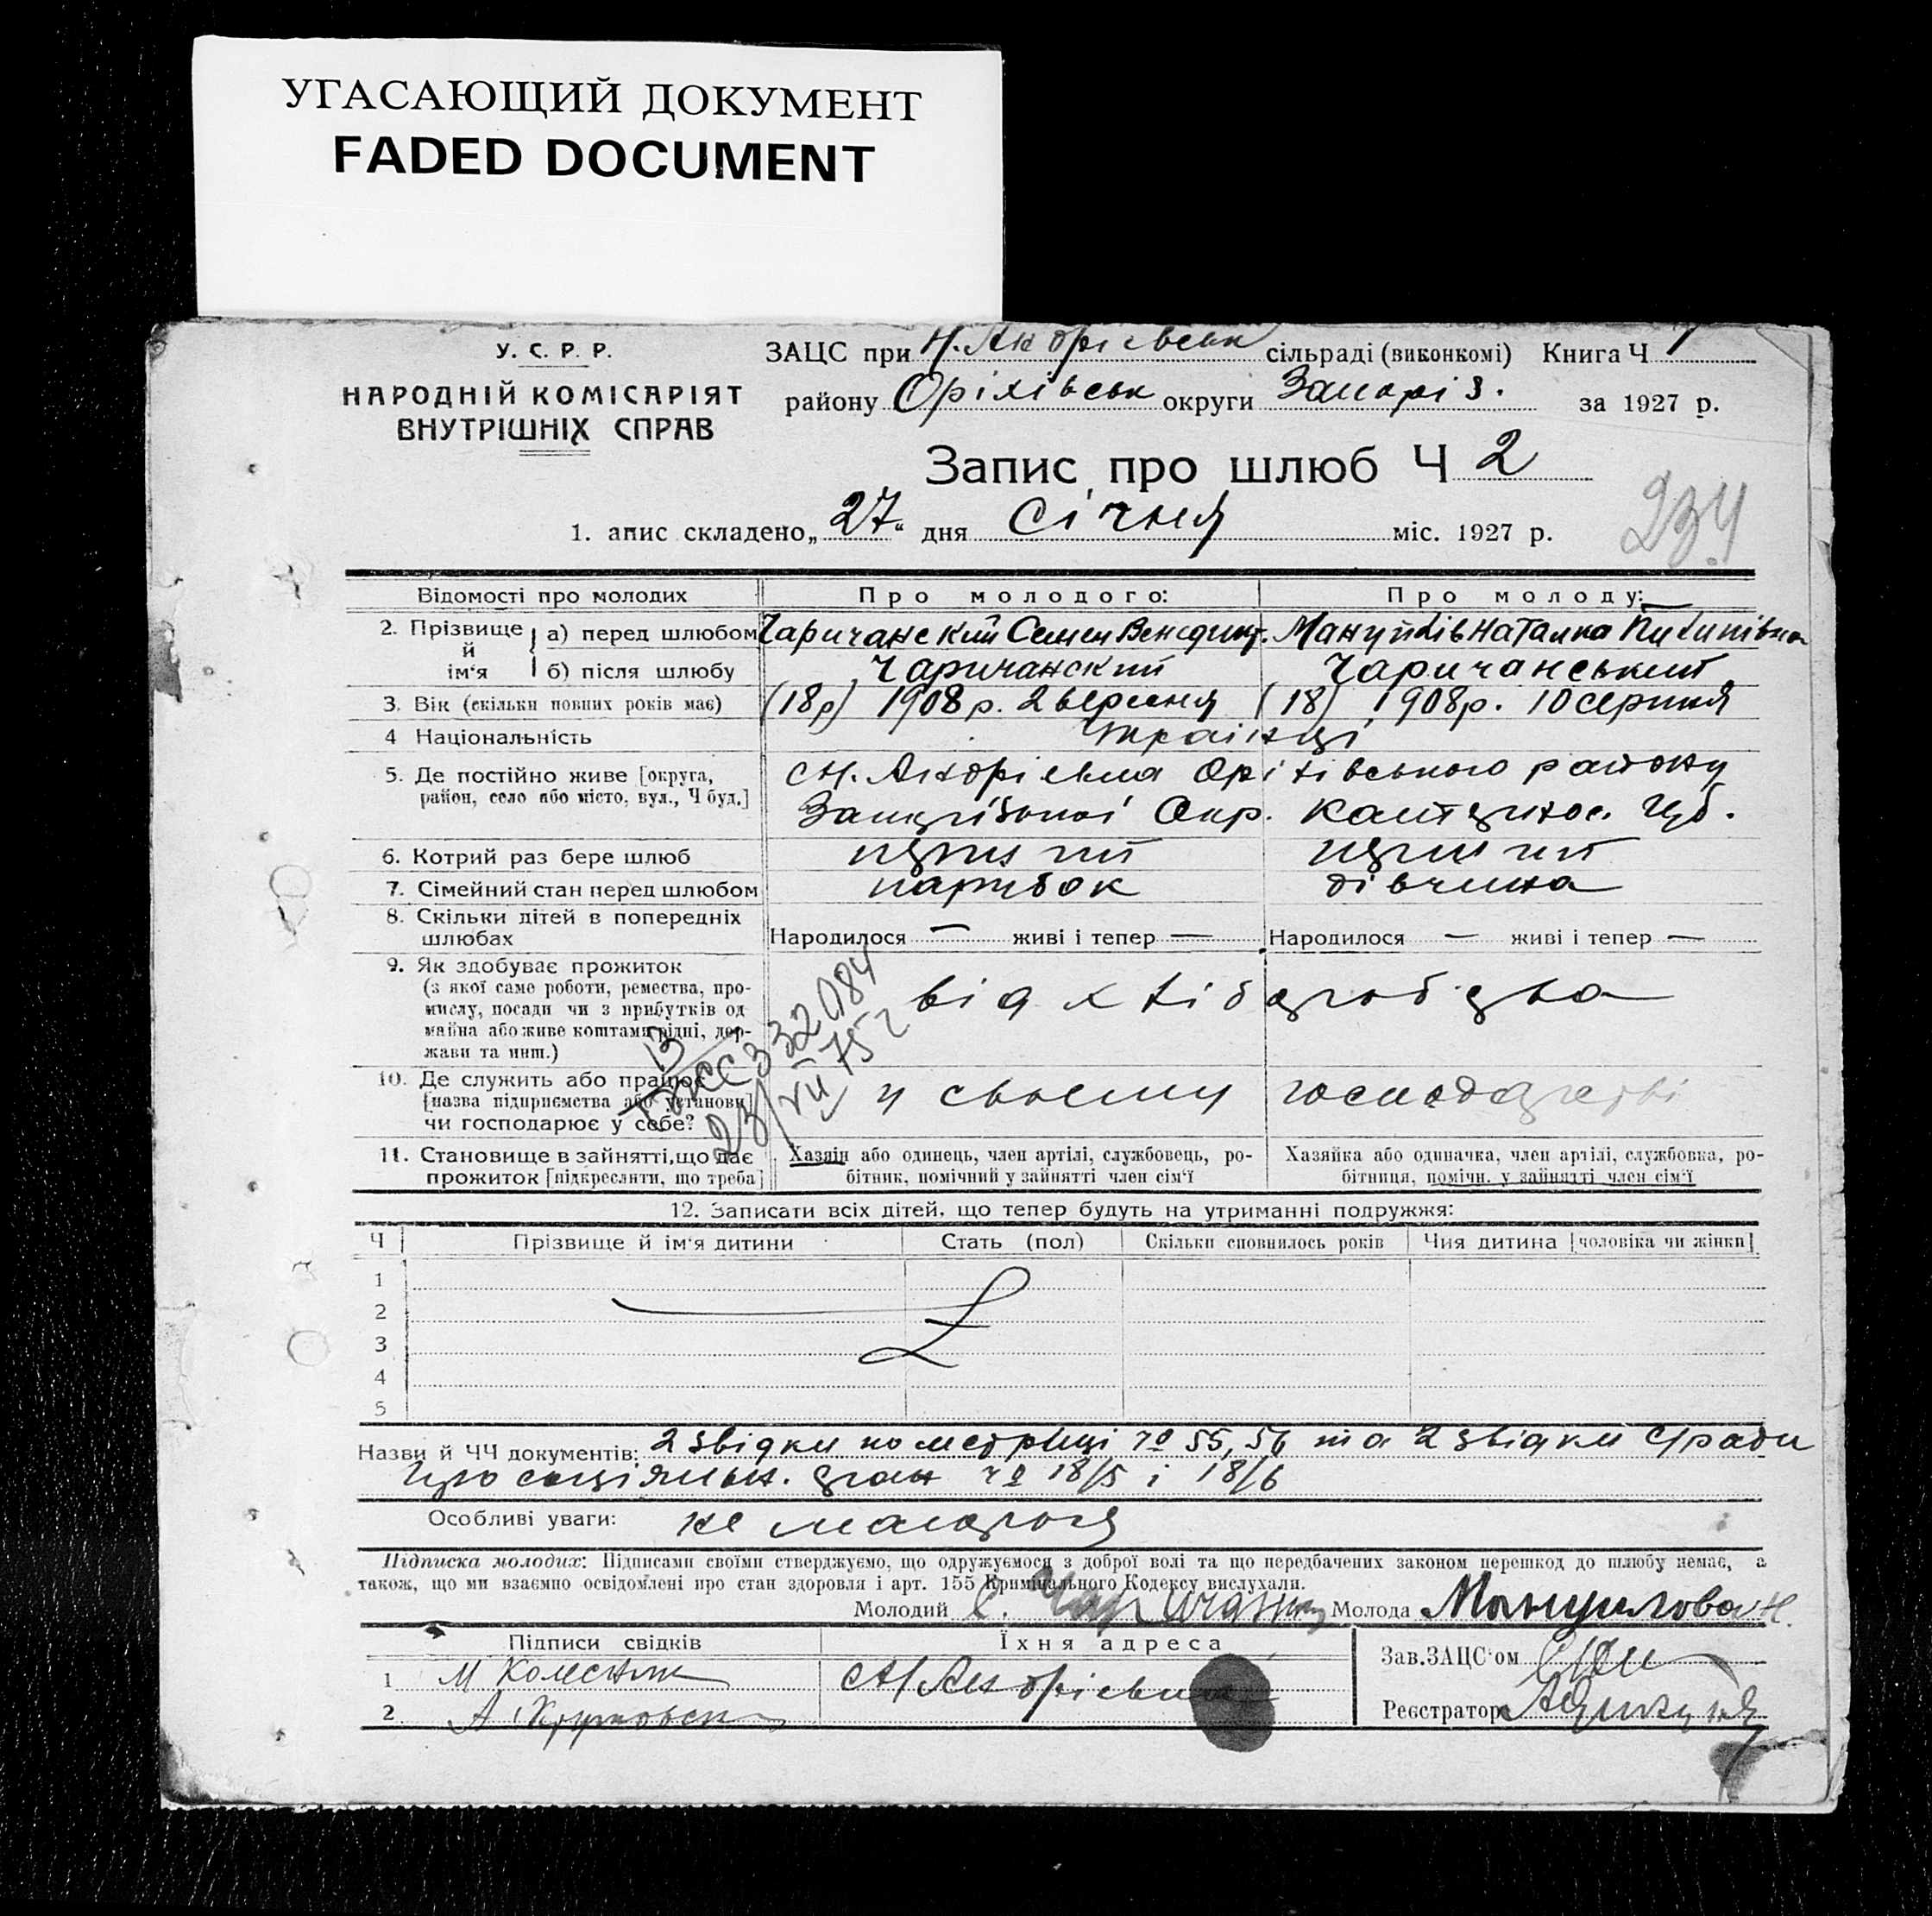 УГАСАЮЩИЙ ДОКУМЕНТ
FADED DOCUMENT
У. С. Р. Р.
НАРОДНІЙ КОМІСАРІЯТ
ВНУТРІШНІХ СПРАВ
ЗАЦС при сільраді (виконкомі) Книга Ч 1
району Оріхівськ округи Запоріз. за 1927 р.
Запис про шлюб Ч 2
234
1. апис складено „27“ дня Січня міс. 1927 р.
Відомості про молодих Про молодого: Про молоду:
2. Прізвище й ім'я а) перед шлюбом Чаричанский Семен Венедикт. Мануйлів Наталка
б) після шлюбу Чаричанский Чаричанський
3. Вік (скільки повних років має) (18р) 1908р. 2 вересня (18) 1908р. 10 серпня
4 Національність Українці
5. Де постійно живе [округа, район, село або місто, вул., Ч буд.] с Н. Андріевка Оріхівського району
Запорізької Окр. Катеринос. Губ.
6. Котрий раз бере шлюб перший перший
7. Сімейний стан перед шлюбом парубок дівчина
8. Скільки дітей в попередніх шлюбах Народилося — живі і тепер — Народилося — живі і тепер —
9. Як здобуває прожиток
(з якої саме роботи, ремества, про-
мислу, посади чи з прибутків од
майна або живе коштами рідні, дер-
жави та инш.)
від хліборобства
332084
23/VII 75г
10. Де служить або працює
[назва підприємства або установи]
чи господарює у себе?
у своему господарстві
11. Становище в зайнятті, що дає
прожиток [підкреслити, що треба]
Хазяїн або одинець, член артілі, службовець, ро-
бітник, помічний у зайнятті член сім'ї
Хазяйка або одиначка, член артілі, службовка, ро-
бітниця, помічн. у зайнятті член сім'ї
12. Записати всіх дітей, що тепер будуть на утриманні подружжя:
Ч Прізвище й ім'я дитини Стать (пол) Скільки сповнилось років Чия дитина [чоловіка чи жінки]
1
2
3
4
5
Назви й ЧЧ документів: 2 звідки по метриці № 55, 56 та 2 звідки с/ради
про соціяльн. стан № 18/5 і 18/6
Особливі уваги: не малося
Підписка молодих: Підписами своїми стверджуємо, що одружуємося з доброї волі та що передбачених законом перешкод до шлюбу немає, а
також, що ми взаємно освідомлені про стан здоровля і арт. 155 Кримінального Кодексу вислухали.
Молодий Молода Мануилова Н.
Підписи свідків Їхня адреса Зав. ЗАЦС'ом
1 М Колесник с Н Андріевка
2 А Реєстратор